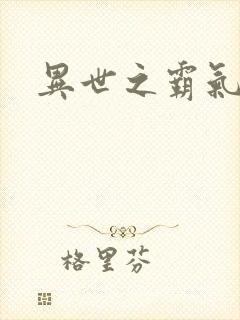 異世之霸氣
格里芬